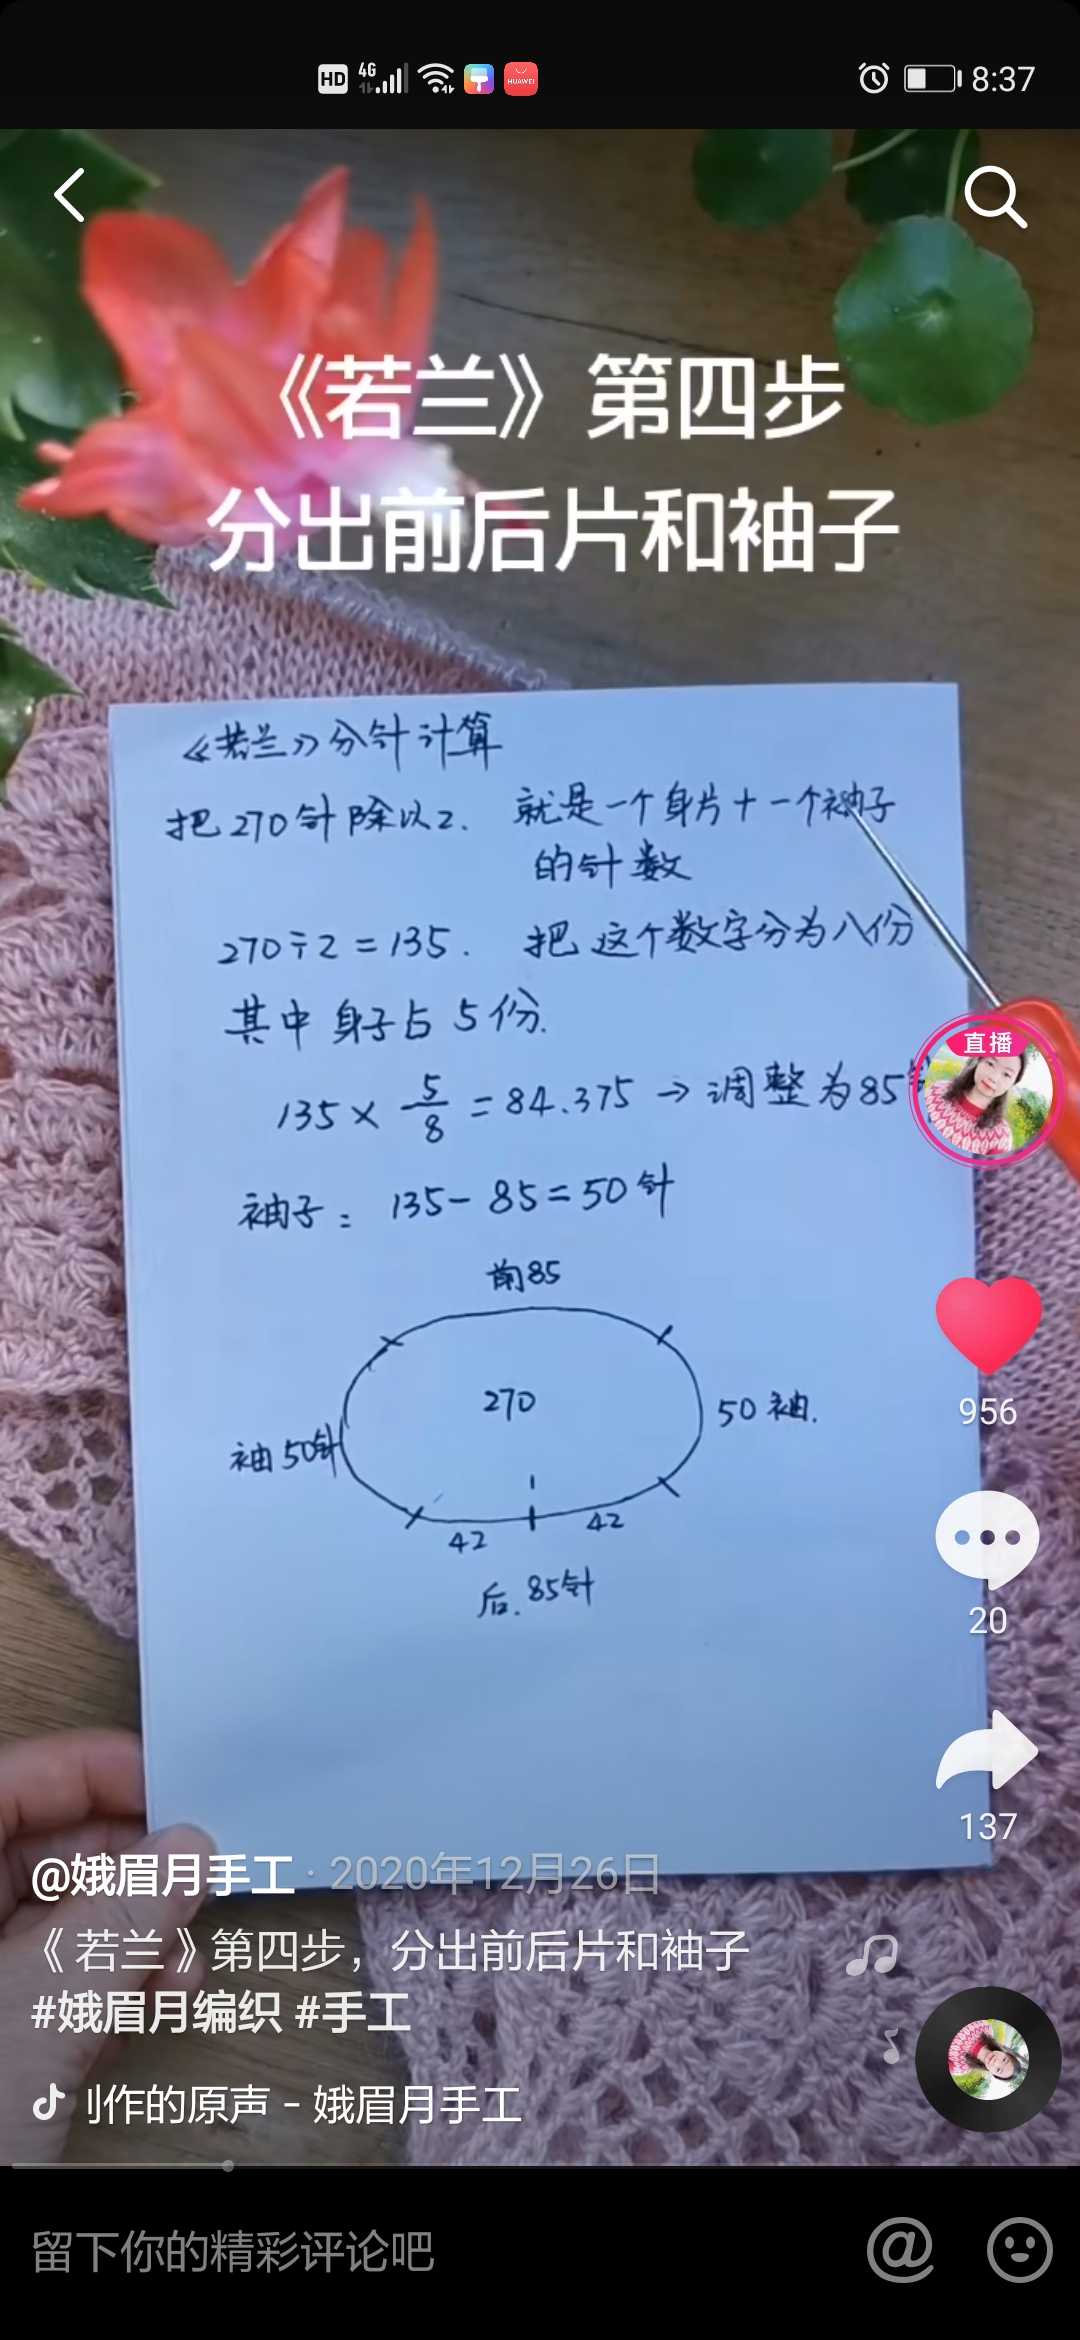 HD 4G HUAWEI 8:37
《若兰》第四步
分出前后片和袖子
《若兰》分针计算
把270针除以2. 就是一个身片+一个袖子
的针数
270÷2=135. 把这个数字分为八份
其中身子占5份.
135×5/8=84.375→调整为85
袖子: 135-85=50针
前85
270
50袖.
袖50针
42 42
后.85针
直播
956
20
137
@娥眉月手工 · 2020年12月26日
《若兰》第四步，分出前后片和袖子
#娥眉月编织 #手工
作的原声 - 娥眉月手工
留下你的精彩评论吧